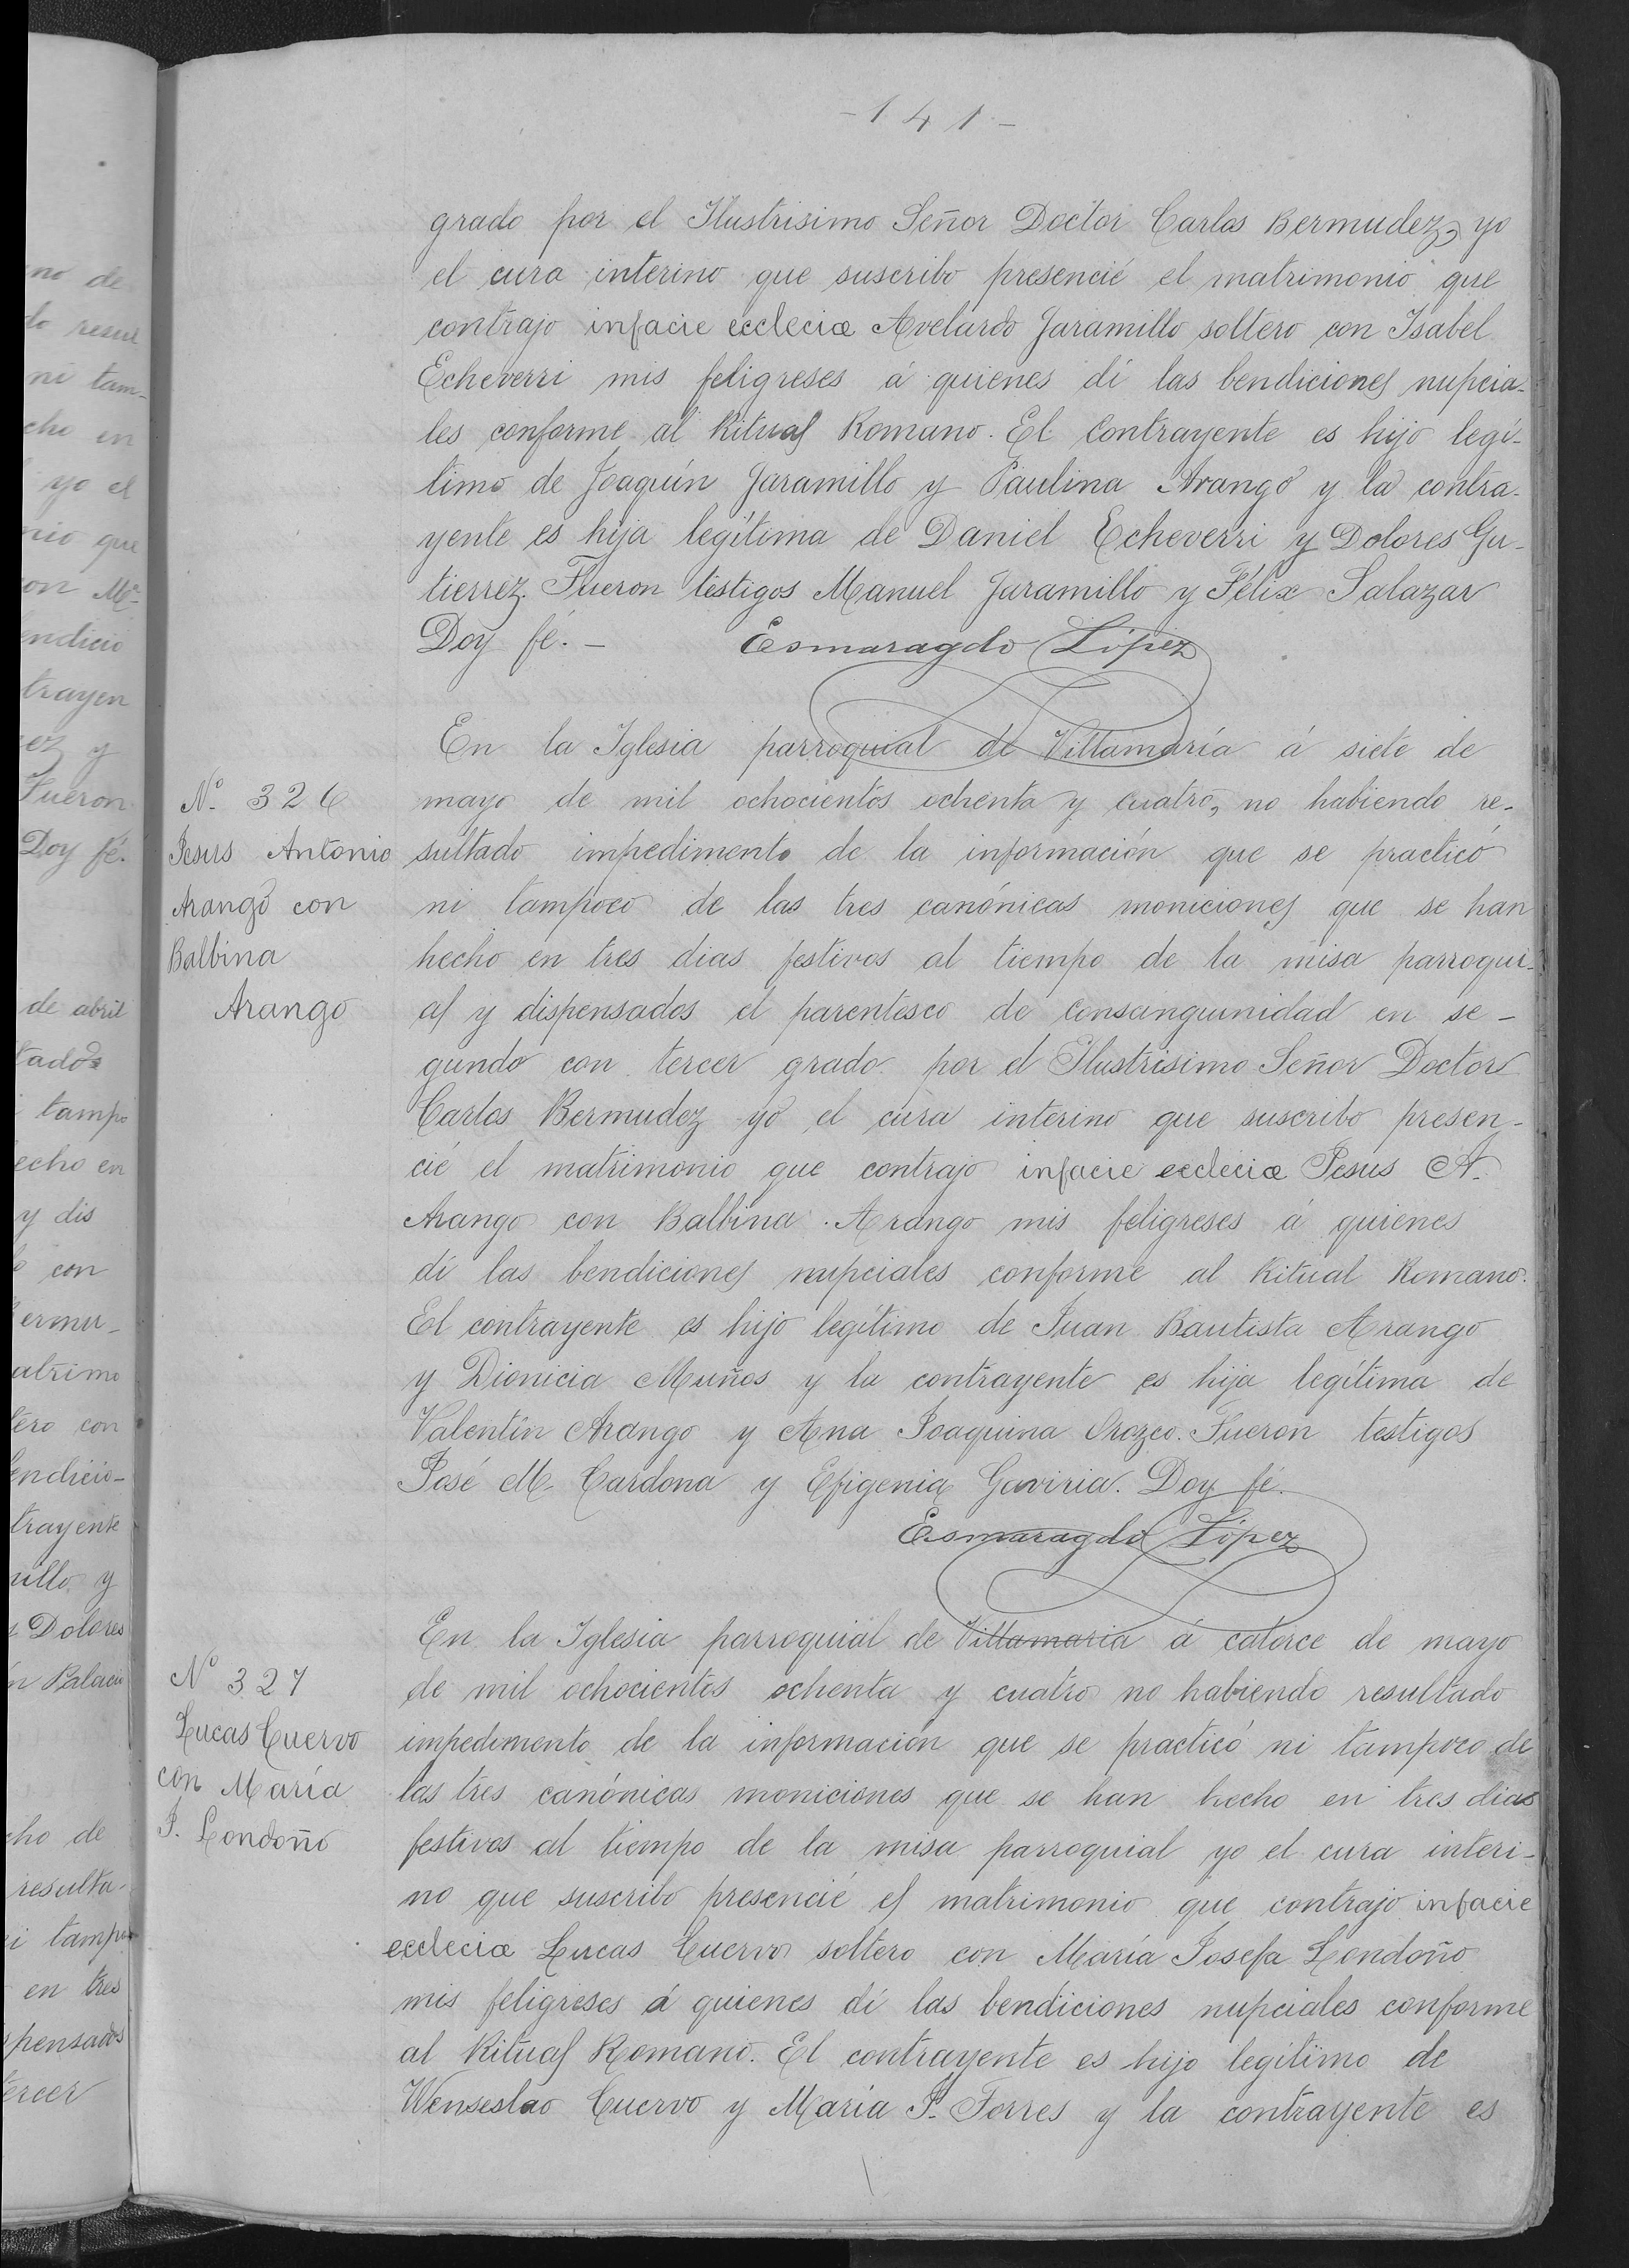 - 141 -
grado por el Ilustrisimo Señor Doctor Carlos Bermudez, yo
el cura interino que suscribo presencié el matrimonio que
contrajo infacie eccleciæ Avelardo Jaramillo soltero con Isabel
Echeverri mis feligreses á quienes dí las bendiciones nupcia-
les conforme al Ritual Romano. El contrayente es hijo legí-
timo de Joaquín Jaramillo y Paulina Arango y la contra-
yente es hija legítima de Daniel Echeverri y Dolores Gu-
tierrez. Fueron testigos Manuel Jaramillo y Félix Salazar
Doy fé. - Esmaragdo López
Nº 326
Jesus Antonio
Arango con
Balbina
Arango
En la Iglesia parroquial de Villamaría á siete de
mayo de mil ochocientos ochenta y cuatro, no habiendo re-
sultado impedimento de la información que se practicó
ni tampoco de las tres canónicas moniciones que se han
hecho en tres dias festivos al tiempo de la misa parroqui-
al y dispensados el parentesco de consanguinidad en se-
gundo con tercer grado por el Ilustrisimo Señor Doctor
Carlos Bermudez yo el cura interino que suscribo presen-
cié el matrimonio que contrajo infacie eccleciæ Jesus A.
Arango con Balbina Arango mis feligreses á quienes
dí las bendiciones nupciales conforme al Ritual Romano.
El contrayente es hijo legítimo de Juan Bautista Arango
y Dionicia Muños y la contrayente es hija legítima de
Valentín Arango y Ana Joaquina Orozco. Fueron testigos
José M. Cardona y Efigenia Gaviria. Doy fé.
Esmaragdo López
Nº 327
Lucas Cuervo
con María
J. Londoño
En la Iglesia parroquial de Villamaria á catorce de mayo
de mil ochocientos ochenta y cuatro no habiendo resultado
impedimento de la información que se practicó ni tampoco de
las tres canónicas moniciones que se han hecho en tres dias
festivos al tiempo de la misa parroquial yo el cura interi-
no que suscribo presencié el matrimonio que contrajo infacie
ecclecia Lucas Cuervo soltero con María Josefa Londoño
mis feligreses á quienes dí las bendiciones nupciales conforme
al Ritual Romano. El contrayente es hijo legítimo de
Wenseslao Cuervo y María J. Torres y la contrayente es